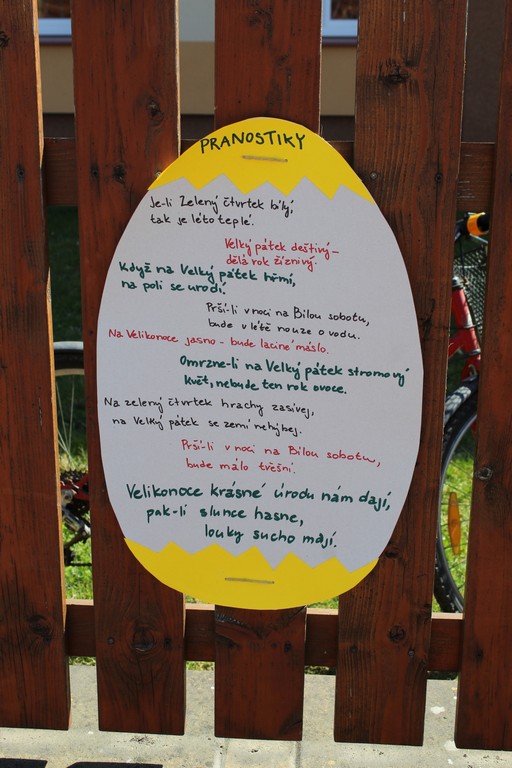 PRANOSTIKY
Je-li Zelený čtvrtek bílý,
tak je léto teplé.
Velký pátek deštivý -
dělá rok žíznivý.
Když na Velký pátek hřmí,
na poli se urodí.
Prší-li v noci na Bílou sobotu,
bude v létě nouze o vodu.
Na Velikonoce jasno - bude laciné máslo.
Omrzne-li na Velký pátek stromový
květ, nebude ten rok ovoce.
Na zelený čtvrtek hrachy zasívej,
na Velký pátek se zemí nehýbej.
Prší-li v noci na Bílou sobotu,
bude málo třešní.
Velikonoce krásné úrodu nám dají,
pak-li slunce hasne,
louky sucho mají.